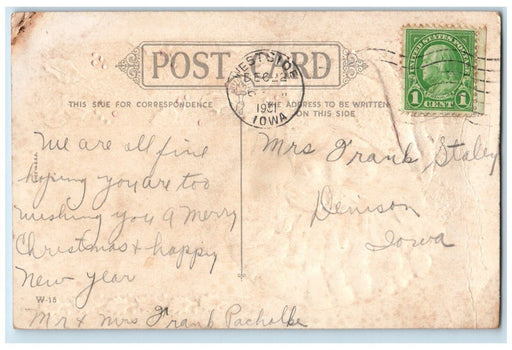 POST CARD
WESTSIDE
DEC
1931
IOWA
UNITED STATES POSTAGE
1 CENT 1
THIS SIDE FOR CORRESPONDENCE
THE ADDRESS TO BE WRITTEN
ON THIS SIDE
We are all fine
hoping you are too
wishing you a merry
Christmas & happy
New year
W-16
Mr & Mrs Frank Pacholke
Mrs Frank Staley
Denison
Iowa